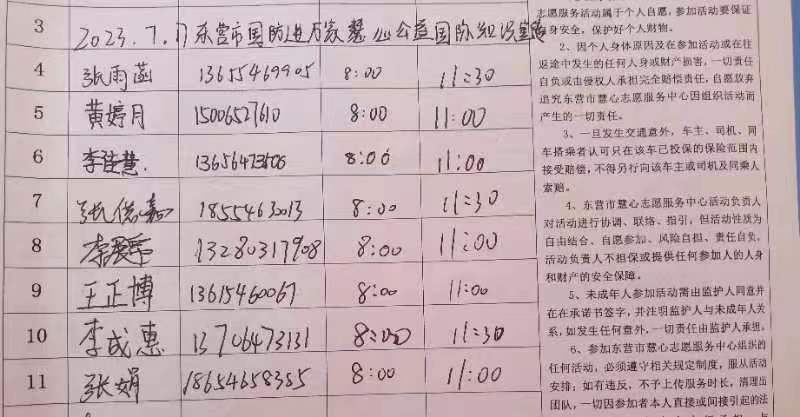 3 2023.7.17东营市国防进万家慧心公益国防知识
4 张雨菡 13655469905 8:00 11:30
5 黄婷月 15006527610 8:00 11:00
6 李佳慧 13656473606 8:00 11:00
7 张俊嘉 18554630013 8:00 11:30
8 李 13280317908 8:00 11:00
9 王正博 13615460067 8:00 11:00
10 李成惠 13706473131 8:00 11:30
11 张娟 18654658385 8:00 11:00
志愿服务活动属于个人自愿,参加活动要保证
身安全,保护好个人财物。
2、因个人身体原因及在参加活动或在往
返途中发生的任何人身或财产损害,一切责任
自负或由侵权人承担完全赔偿责任,自愿放弃
追究东营市慧心志愿服务中心因组织活动而
产生的一切责任。
3、一旦发生交通意外,车主、司机、同
车搭乘者认可只在该车已投保的保险范围内
接受赔偿,不得另行向该车主或司机及同乘人
索赔。
4、东营市慧心志愿服务中心活动负责人
对活动进行协调、联络、指引,但活动性质为
自由结合、自愿参加、风险自担、责任自负,
活动负责人不担保或提供任何参加人的人身
和财产的安全保障。
5、未成年人参加活动需由监护人同意并
在在承诺书签字,并注明监护人与未成年人关
系,如发生任何意外,一切责任由监护人承担。
6、参加东营市慧心志愿服务中心组织的
任何活动,必须遵守相关规定制度,服从活动
安排;如有违反,不予上传服务时长,清理出
团队,一切因参加者本人直接或间接引起的法